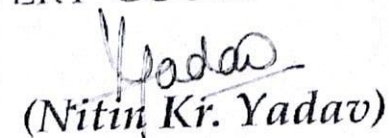 Yadav
(Nitin Kr. Yadav)